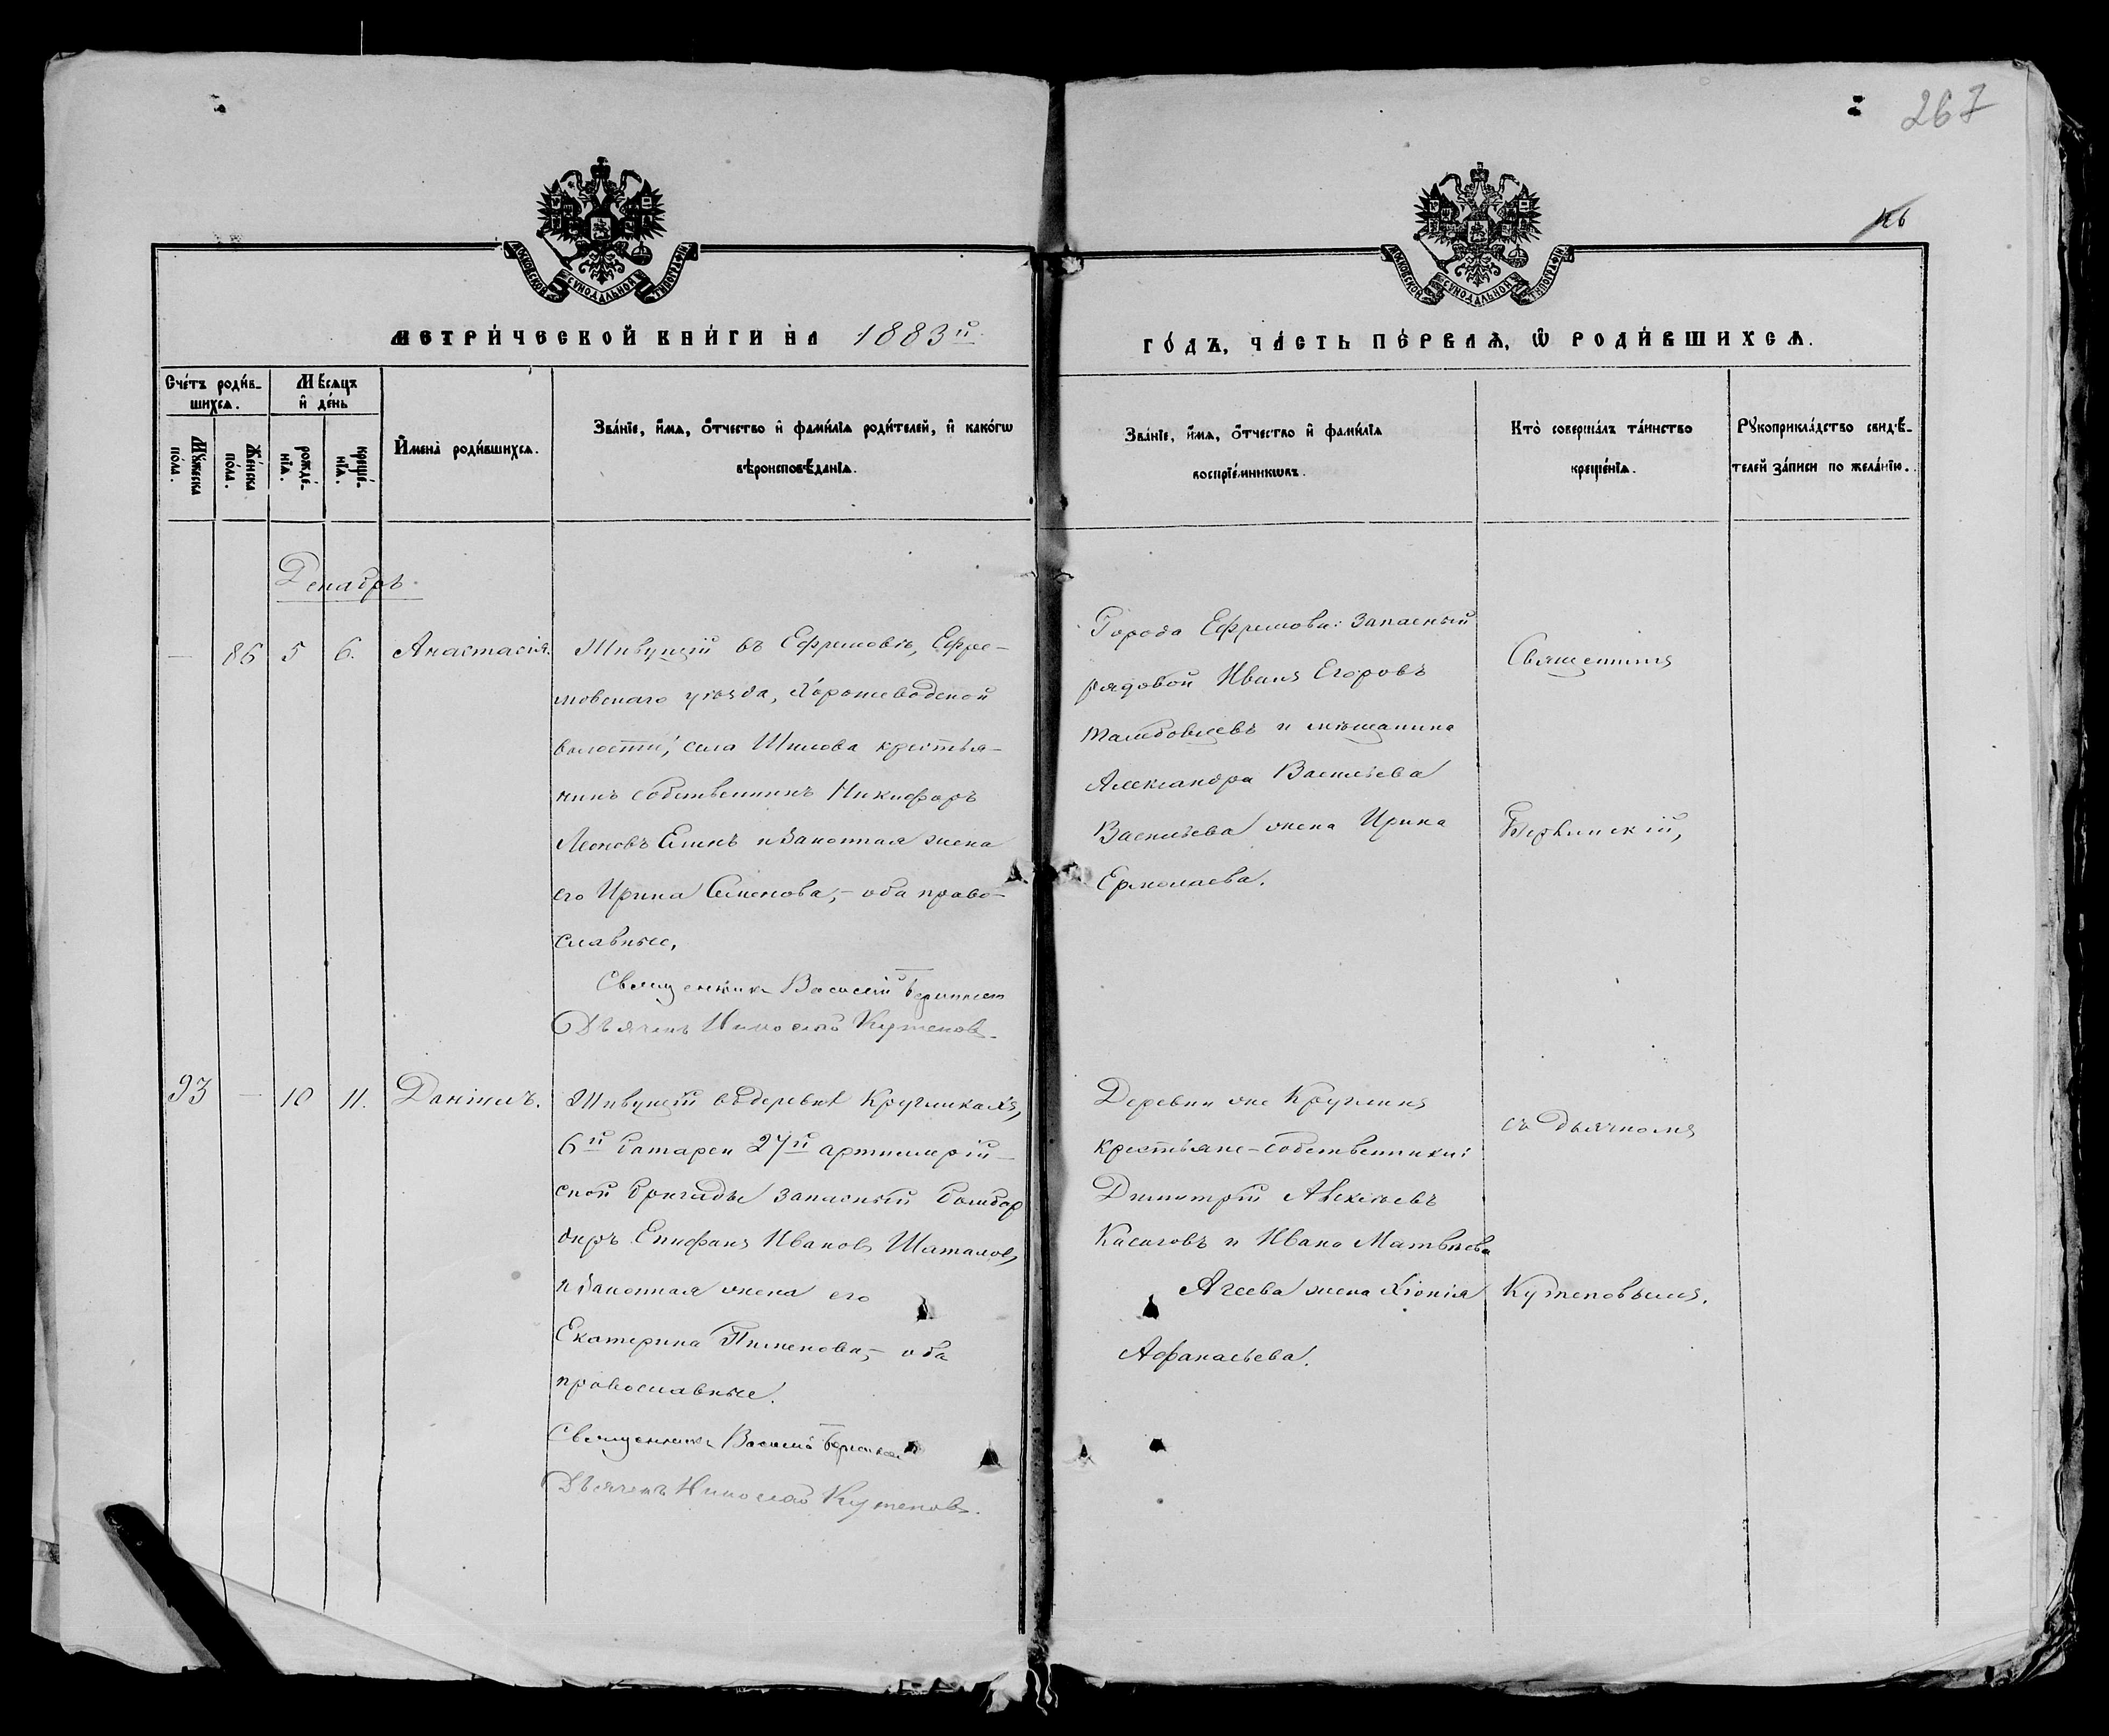 267
126
МОСКОВСКОЙ СѴНОДАЛЬНОЙ ТѴПОГРАФІИ
МОСКОВСКОЙ СѴНОДАЛЬНОЙ ТѴПОГРАФІИ
МЕТРИ́ЧЕСКОЙ КНИ́ГИ НА 1883й
ГО́ДЪ, ЧА́СТЬ ПЕ́РВАѦ, Ѽ РОДИ́ВШИХСѦ.
Сче́тъ роди́в-
шихсѧ.
Мꙋ́жеска
по́ла.
Же́нска
по́ла.
Мѣ́сѧцъ
и҆ де́нь
рожде́-
нїѧ.
креще́-
нїѧ.
И҆мена̀ роди́вшихсѧ.
Зва́нїе, и҆́мѧ, ѻ҆́тчество и҆ фами́лїѧ роди́телей, и҆ како́гѡ
вѣроисповѣ́данїѧ.
Зва́нїе, и҆́мѧ, ѻ҆́тчество и҆ фами́лїѧ
воспрїе́мникѡвъ.
Кто̀ соверша́лъ та́инство
креще́нїѧ.
Рꙋкоприкла́дство свидѣ́-
телей за́писи по жела́нїю.
Декабрь
— 86 5 6. Анастасія.
Живущій въ Ефремовѣ, Ефре-
мовскаго уѣзда,
волости, села Шилова крестья-
нинъ собственникъ Никифоръ
Леоновъ Елинъ и законная жена
его Ирина Семенова, — оба право-
славные,
Священникъ Василій
Дьячекъ Николай Кутеповъ.
Города Ефремова: запасный
рядовой Иванъ Егоровъ
и мѣщанина
Александра Васильева
Васильева жена Ирина
Ермолаева.
Священникъ
93 — 10 11. Даніилъ.
Живущій въ деревнѣ Кругликахъ,
6й батареи 27й артиллерій-
ской бригады запасный бомбар
диръ Епифанъ Ивановъ Шаталовъ
и законная жена его
Екатерина Пименова, — оба
православные.
Священникъ Василій
Дьячекъ Николай Кутеповъ.
Деревни же
крестьяне-собственники:
Димитрій Алексѣевъ
Касаговъ и Ивана Матвѣева
Агеева жена Хіонія
Афанасьева.
съ дьячкомъ
Кутеповымъ.